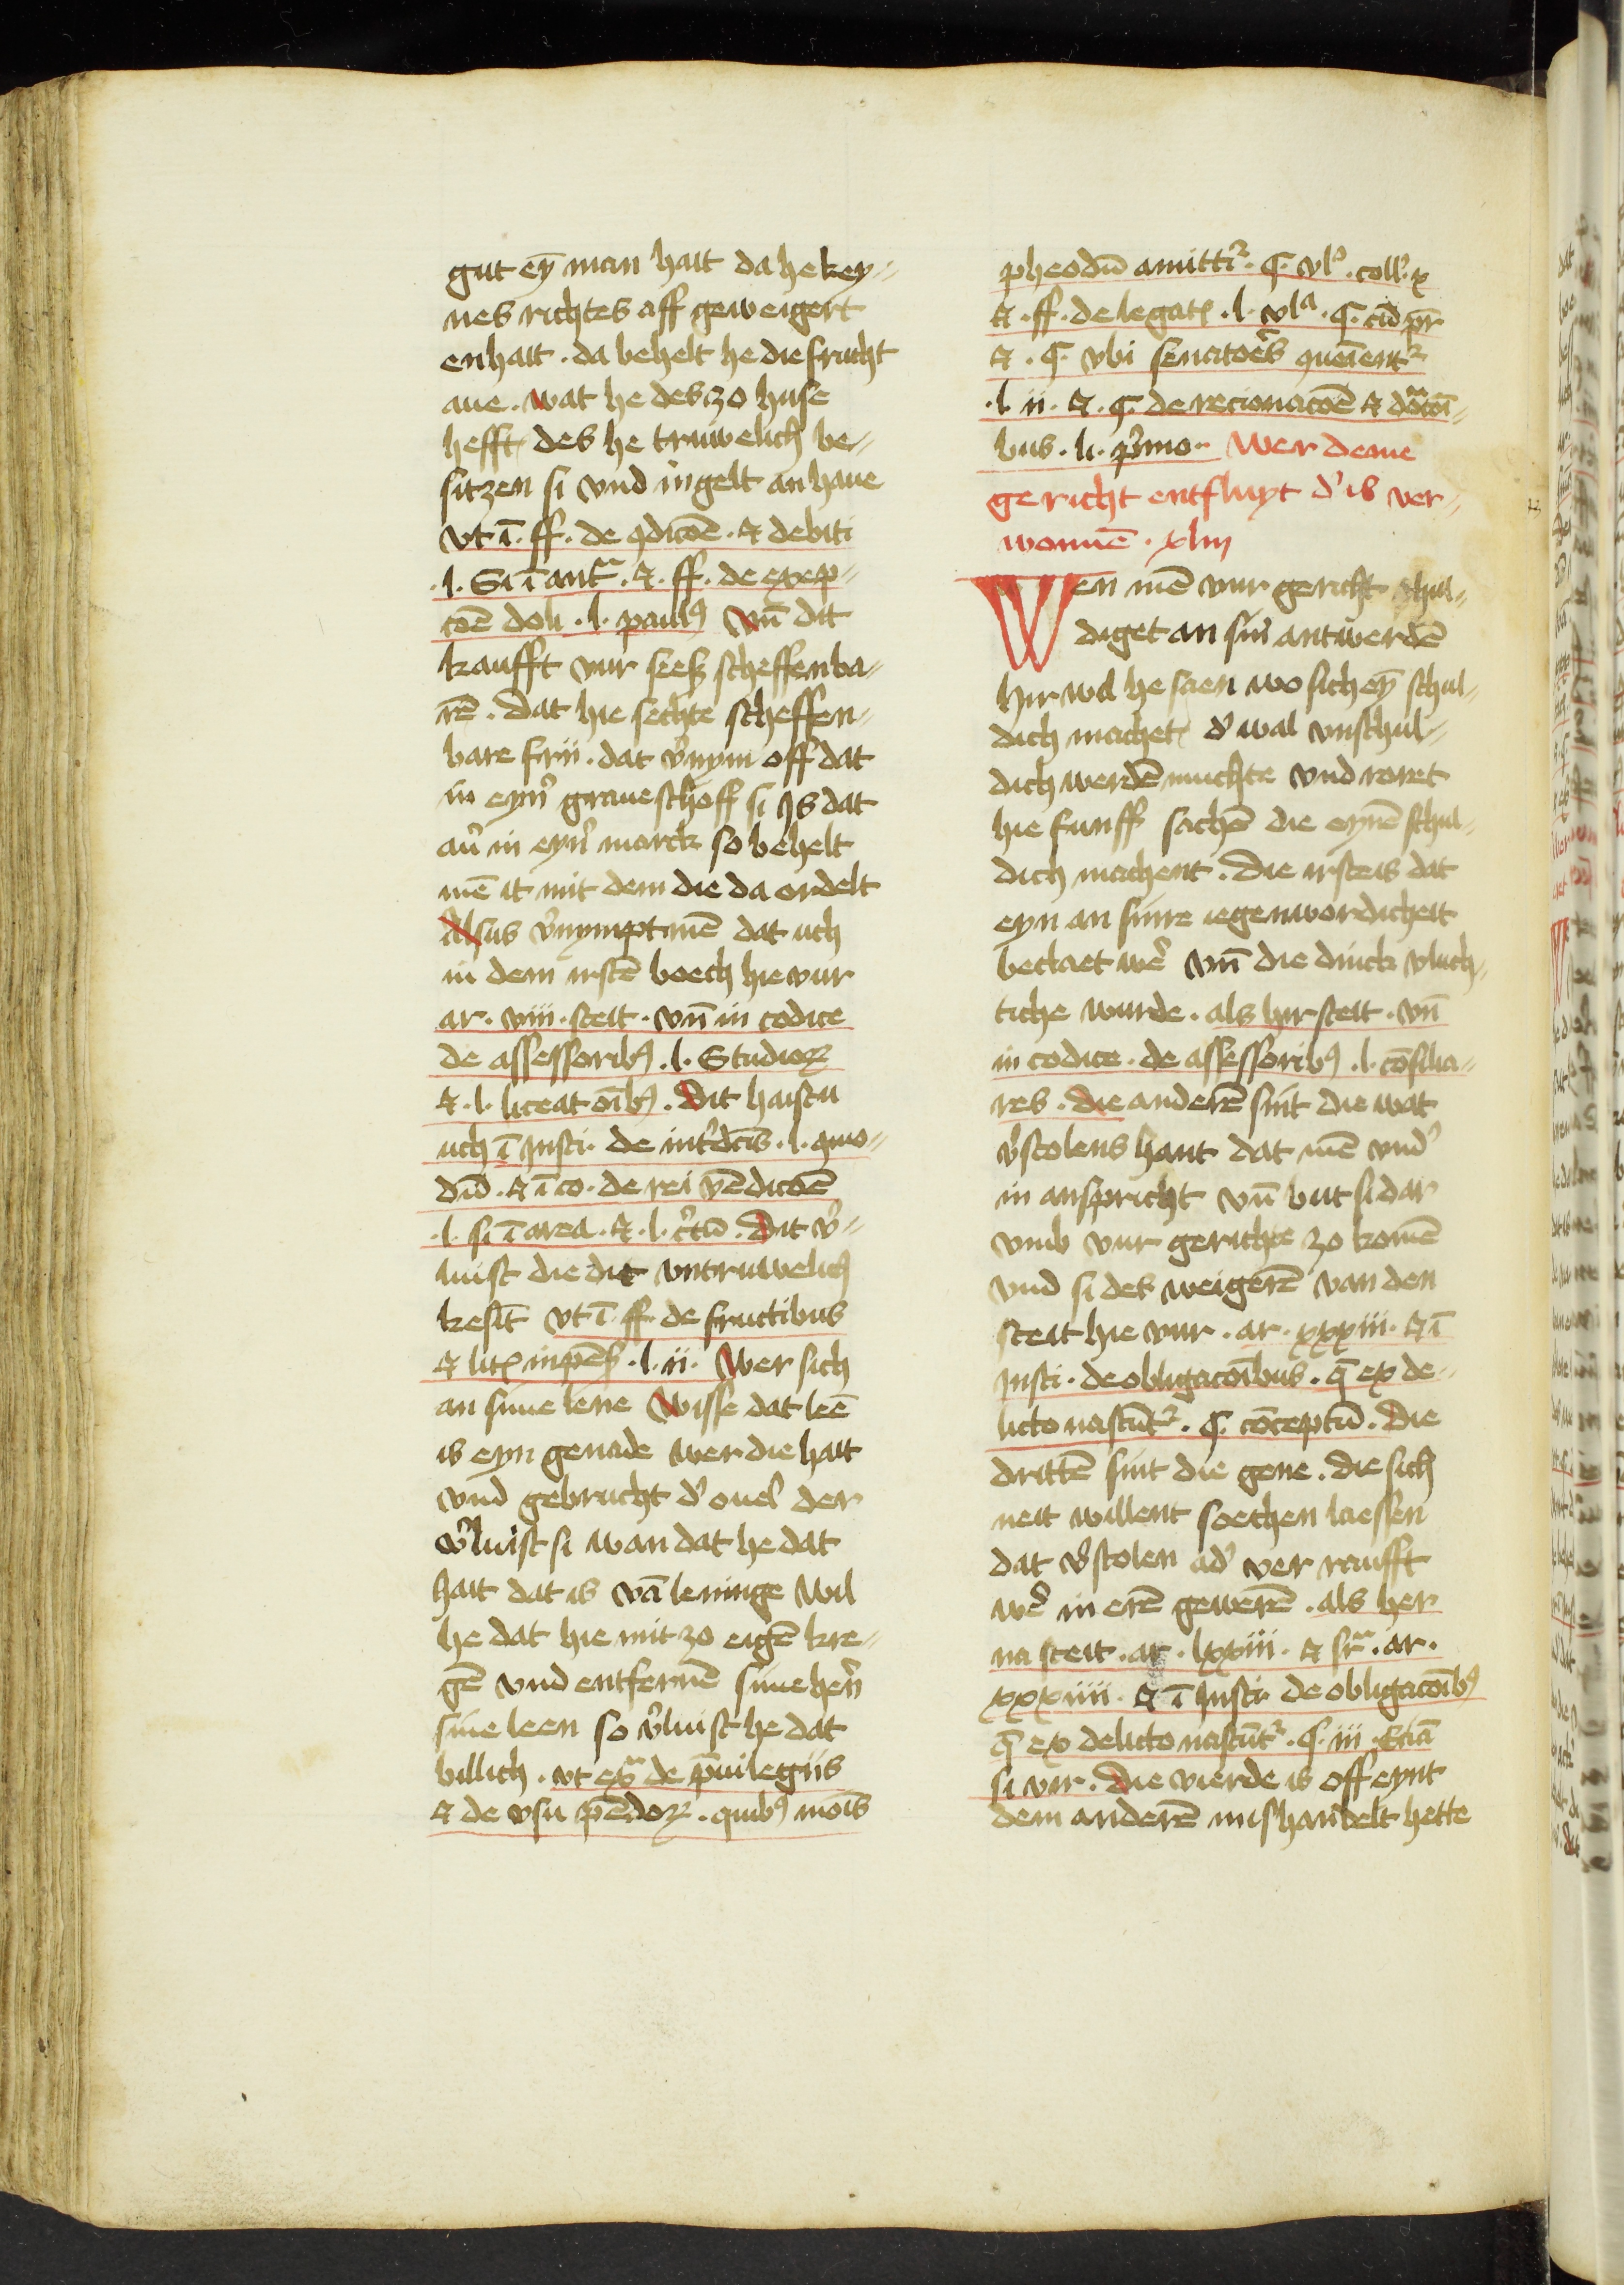 gut ey̅ man hait da he key-
nes richtes aff geweigert
en hait . da behelt he die frucht
aue . wat he des zo huse
hefft des he truwelich be-
sitzen si vnd in gelt an haue
vt i̅ . ff . de ꝯdicoe̅ . et debiti
.l. Si i̅ ant͛ . et . ff . de exep-
coe̅ doli .l. paulꝰ vn̅ dit
kaufft vur sees scheffenba-
re̅ . dat hie sechte scheffen-
bare frii . dat v͛nym off dat
in eyn͛ graueschoff si Js dat
au͛ in eyn͛ marck so behelt
me̅ it mit dem die da ordelt
Alsus v͛nympt me̅ dat uch
in dem irste̅ boech hie vur
ar . viii . steit . vn̅ in codice
de assessoribꝰ .l. Studioꝝ
et .l. liceat oi̅bꝰ . Dit haistu
uch i̅ Insti . de int͛dc̅is .l. quo-
du̅ . et i̅ co . de rei ve̅dicoe̅
.l. si i̅ area . et .l. c͛tu̅ . Dat v͛-
luist die dit vntruwelich
besit̅ vt i̅ ff . de fructibus
et litꝭ inpe̅s .l. ii . Wer sich
an sime lene Wisse dat lee̅
is eyn genade wer die hait
vnd gebrucht d͛ ouel der
v͛luist si wan dat he dat
hait dat is va̅ leninge Wil
he dat hie mit zo eige̅ kre-
ge̅ vnd entferne̅ sime her͛n
sine leen so v͛luist he dat
billich . vt ex͛ de p͛uilegiis
et de vsu phe̅doꝝ . quibꝰ mo̅is
pheodu̅ amittit͛ . C . vl͛ . coll . x
et . ff . de legatꝭ .l. vlᵃ . C . cu̅ pr̅
et . C . vbi senatoe͛s queient͛
.l. ii . et . C . de recionacoe̅ et do͛coi̅-
bus . li . p͛mo . Wer deme
gericht entfluyt d͛ is ver-
wonne̅ . xliii
Wen me̅ vur gericht schul-
diget an sin antwerde̅
hir wil he saen wo sich ey̅ schul-
dich machet d͛ wal vnschul-
dich werde̅ muchte vnd roret
hie funff sache̅ die eyne̅ schul-
dich machent . Die irste is dat
eyn an sinre iegenwordicheit
beclaet we͛ vn̅ die dinck vluch-
tiche wurde . als hir steit . vn̅
in codice . de assessoribꝰ .l. co̅silia-
res . die andere̅ sint die wat
v͛stolens hant dat me̅ vnd͛
in anspricht vn̅ but si dar
vmb vur gerichte zo kome̅
vnd si des weigere̅ van den
steit hie vur . ar . xxxiii . et i̅
Insti . de obligacoi̅bus . q̅ ex de-
licto nascu̅t͛ . C . co̅ceptu̅ . Die
dritte̅ sint die gene . die sich
neit willent soechen laessen
dat v͛stolen ad͛ ver raufft
we͛ in ere̅ gewere̅ . als her
na steit . ar . lxxiii . et sr͛ . ar .
xxxiiii . et i̅ Insti . de obligacoi̅bꝰ
q̅ ex delicto nascu̅t͛ . C . iii . Etia̅
si vir . Die vierde is off eynt
dem andere̅ mishandelt hette